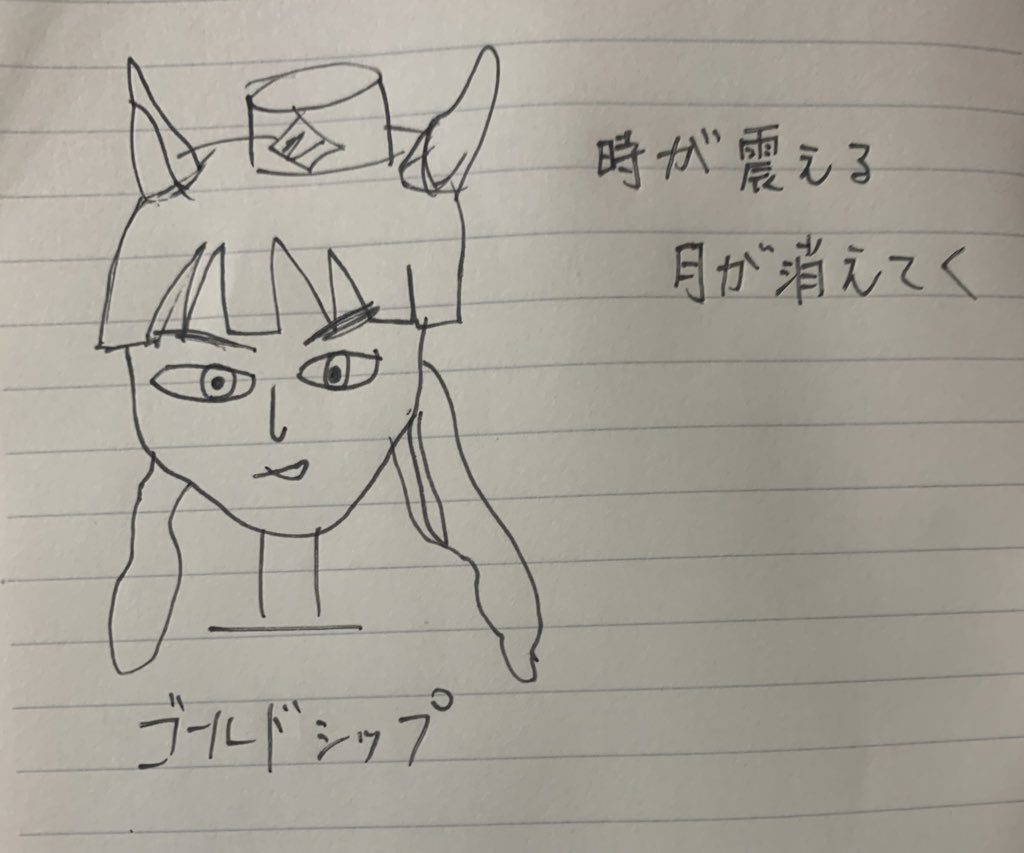 時が震える
月が消えてく
ゴールドシップ